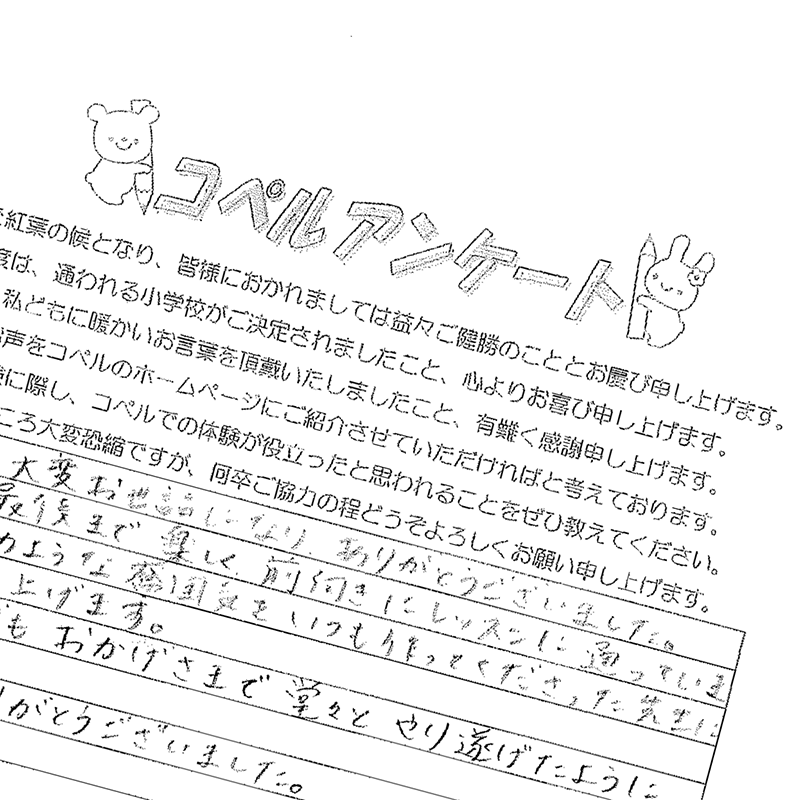 コペルアンケート
紅葉の候となり、皆様におかれましては益々ご健勝のこととお慶び申し上げます。
度は、通われる小学校がご決定されましたこと、心よりお喜び申し上げます。
私どもに暖かいお言葉を頂戴いたしましたこと、有難く感謝申し上げます。
お声をコペルのホームページにご紹介させていただければと考えております。
に際し、コペルでの体験が役立ったと思われることをぜひ教えてください。
ころ大変恐縮ですが、何卒ご協力の程どうぞよろしくお願い申し上げます。
大変お世話になり、ありがとうございました。
最後まで楽しく前向きにレッスンに通っていま
のような雰囲気をいつも作ってくださった先生に
上げます。
もおかげさまで堂々とやり遂げたように
りがとうございました。